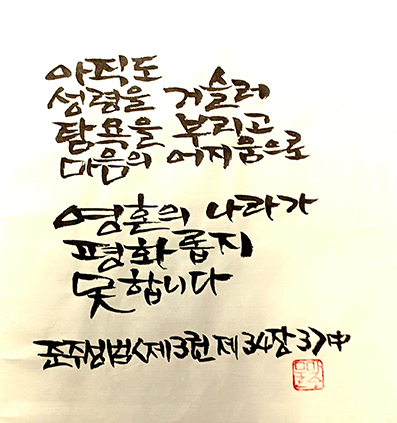 아직도
성령을 거슬러
탐욕을 부리고
마음의 어지움으로
영혼의 나라가
평화롭지
못합니다
준주성범<제3권 제34장 3>中